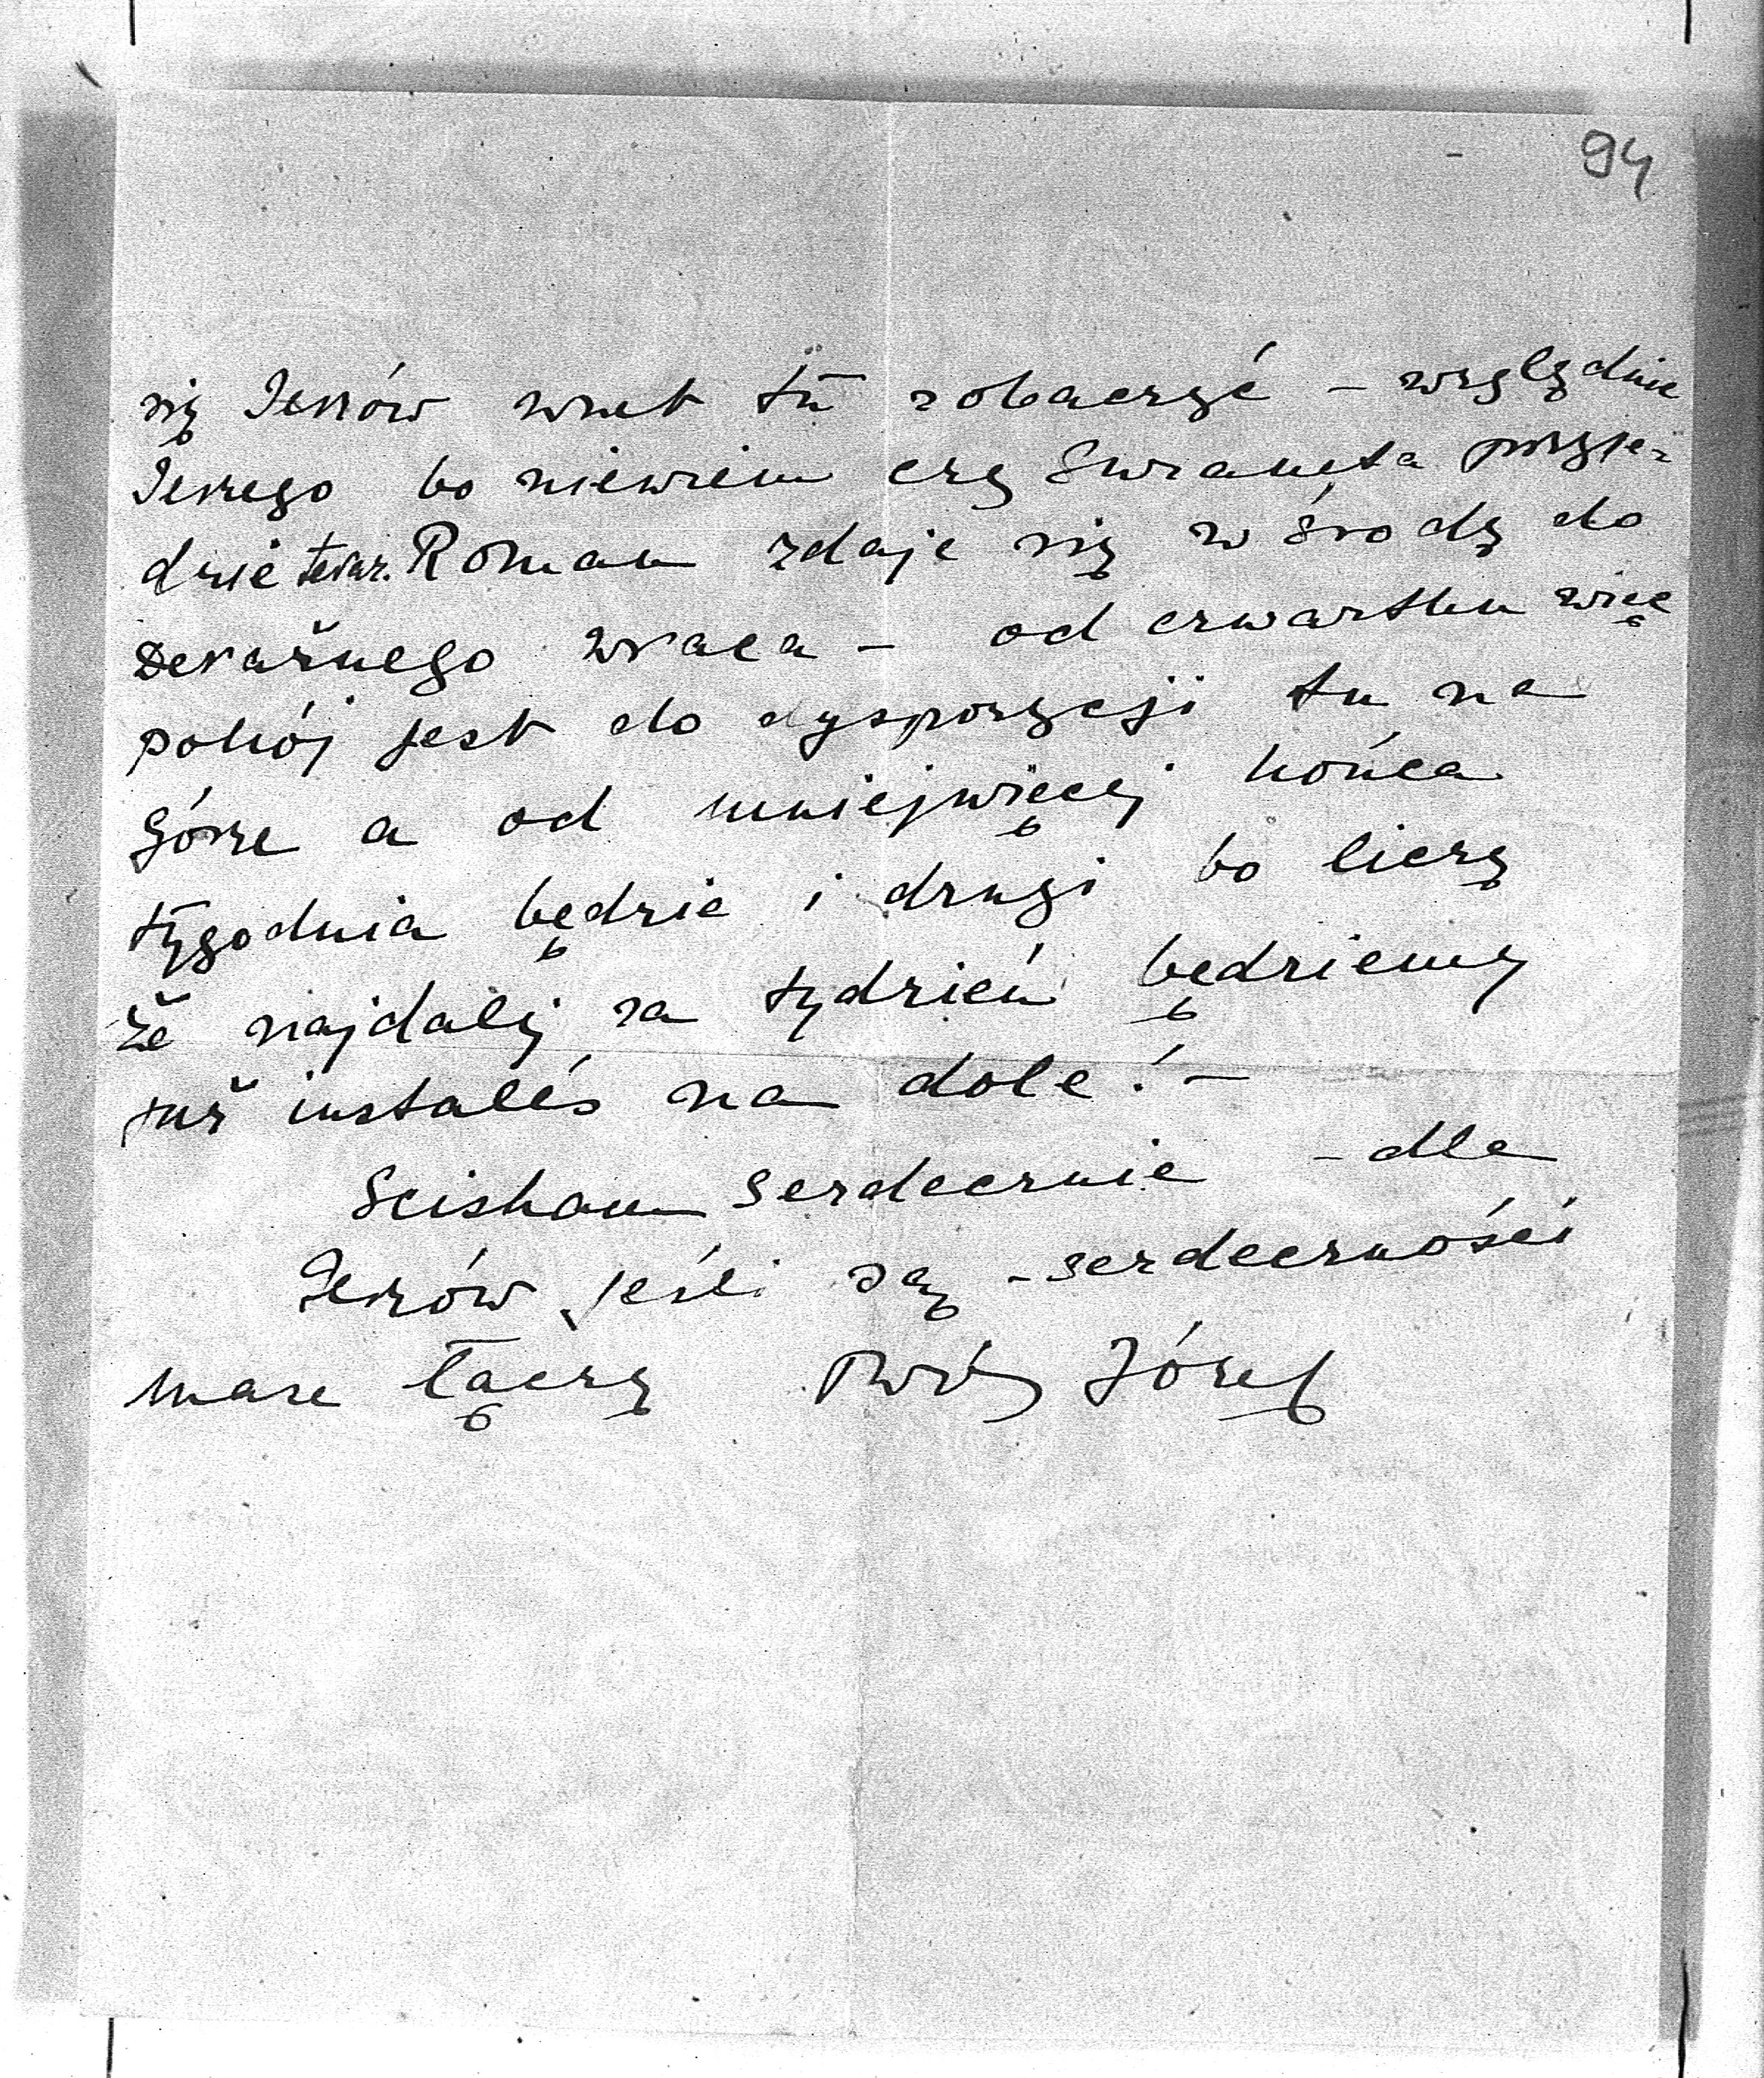 94
się Jerzów wnet tu zobaczyć – względnie
Jerzego bo niewiem czy Swraneta przyje-
dzie teraz. Roman zdaje się w środę do
Derażnego wraca – od czwartku więc
pokój jest do dyspozycji tu na
górze a od mniejwięcej końca
tygodnia będzie i drugi bo liczę
że najdalej za tydzień będziemy
już instalés na dole! –
Sciskam serdecznie – dla
Jerzów jeśli są – serdeczności
masę łączę Twój Józef